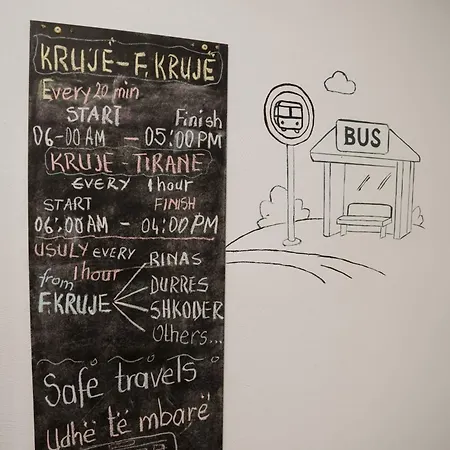 KRUJË-F.KRUJË
Every 20 min
START Finish
06-00 AM - 05:00 PM
KRUJE - TIRANE
EVERY 1 hour
START FINISH
06:00 AM - 04:00 PM
USULY EVERY
1 hour
from
F.KRUJE
RINAS
DURRES
SHKODER
Others...
Safe travels
Udhë të mbarë
BUS